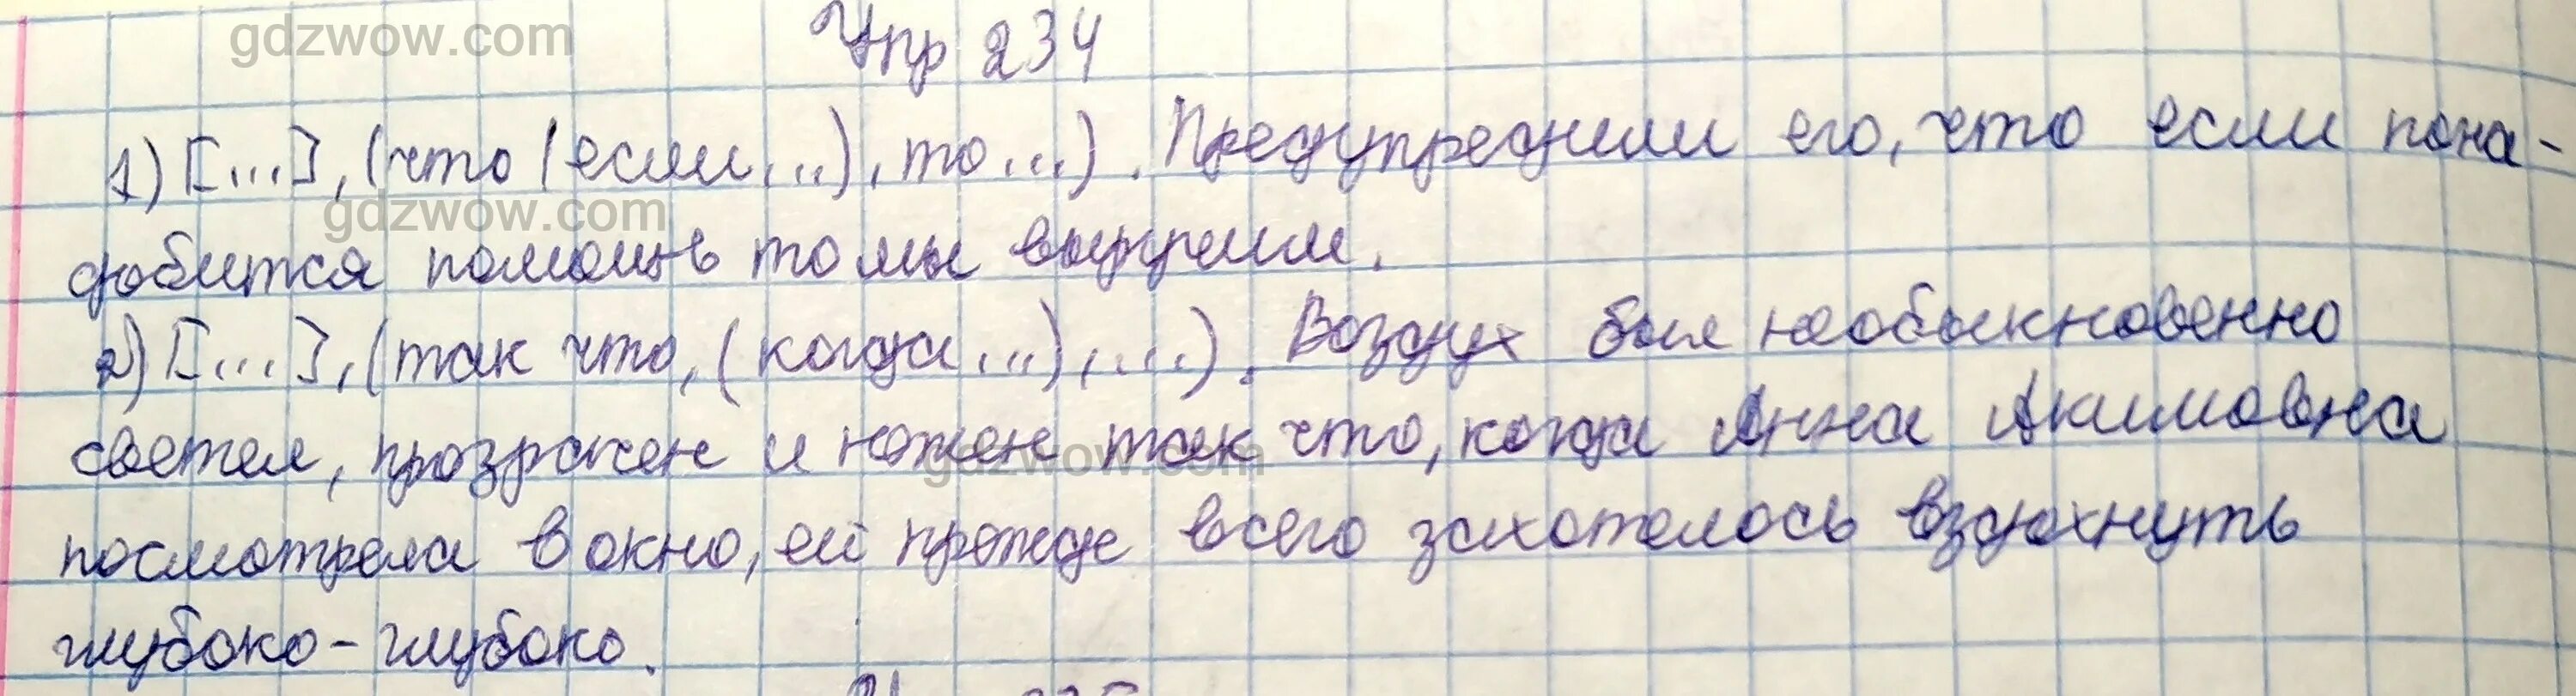 gdzwow.com
Упр 234
1) [...], (что (если...), то...). Предупредили его, что если пона-
gdzwow.com
добится помощь то мы выручим.
2) [...], (так что, (когда...), ...). Воздух был необыкновенно
светел, прозрачен и нежен так что, когда Анна Акимовна
gdzwow.com
посмотрела в окно, ей прежде всего захотелось вздохнуть
глубоко-глубоко.